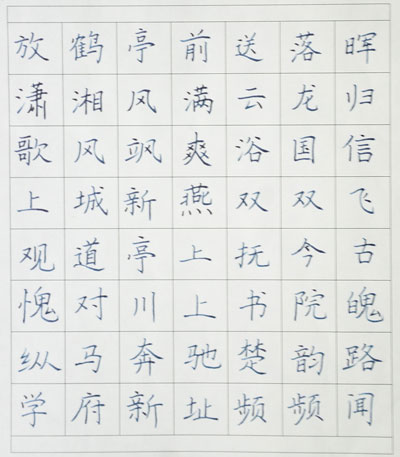 放鹤亭前送落晖
潇湘风满云龙归
歌风飒爽浴国信
上城新燕双双飞
观道亭上抚今古
愧对川上书院魄
纵马奔驰楚韵路
学府新址频频闻